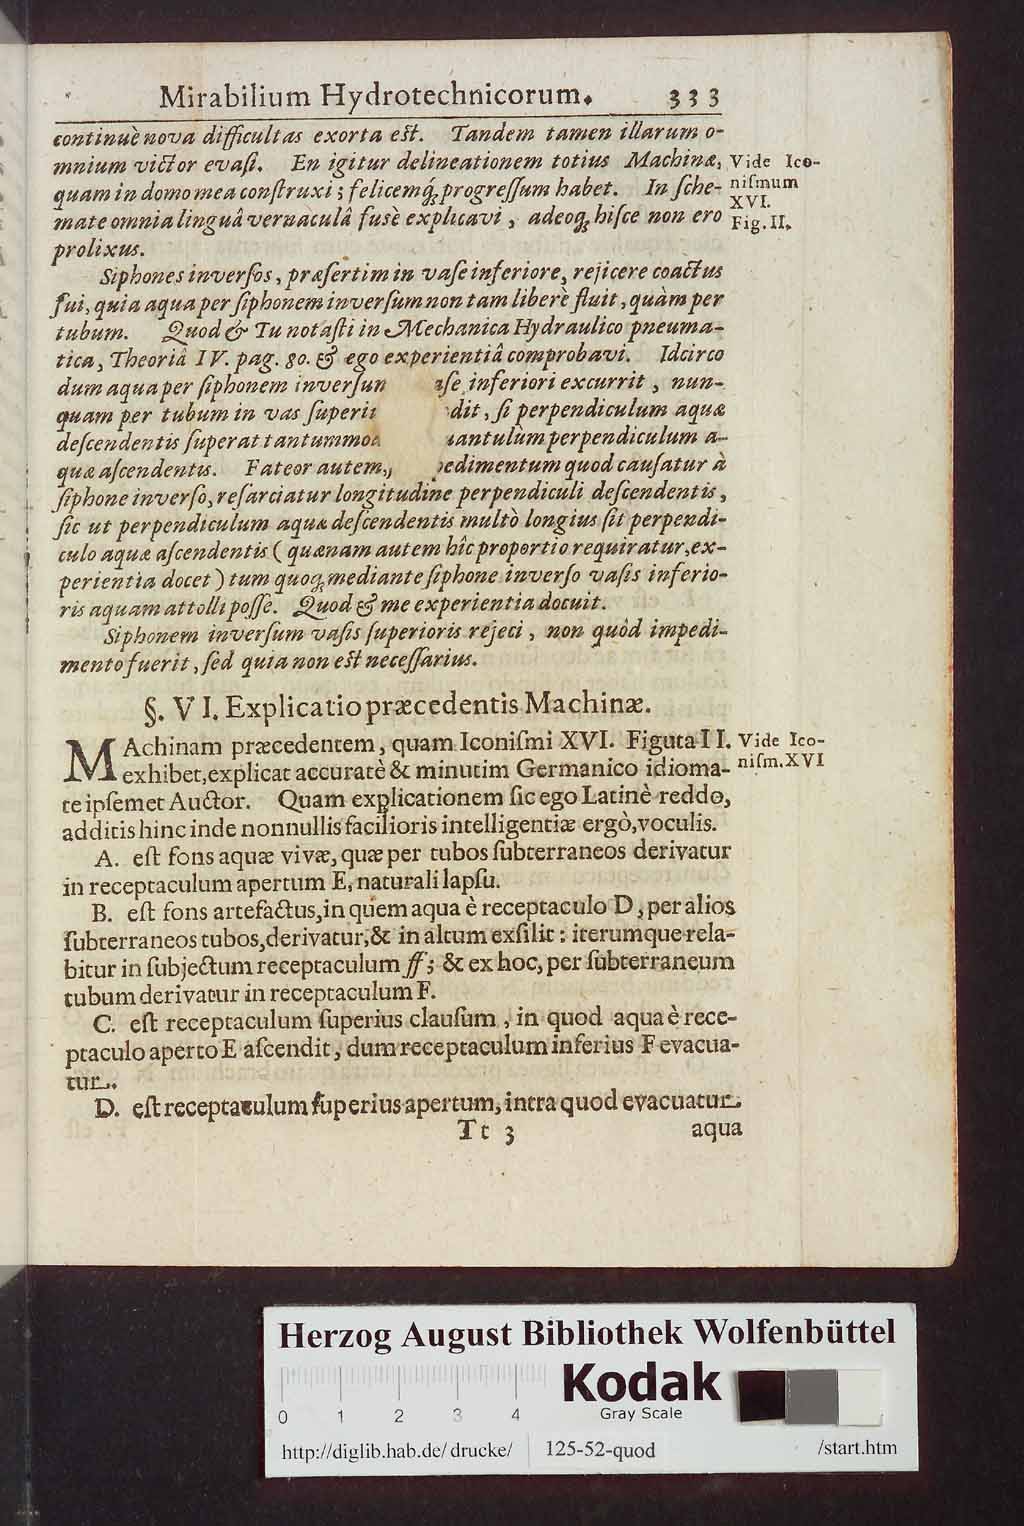 Mirabilium Hydrotechnicorum. 333
continuè nova difficultas exorta eſt. Tandem tamen illarum o-
mnium victor evaſi. En igitur delineationem totius Machinæ, Vide Ico-
quam in domo mea conſtruxi; felicemq́; progreſſum habet. In ſche- niſmum
XVI.
mate omnia linguâ vernaculâ fusè explicavi, adeoq; hiſce non ero Fig. II.
prolixus.
Siphones inverſos, præſertim in vaſe inferiore, rejicere coactus
fui, quia aqua per ſiphonem inverſum non tam liberè fluit, quàm per
tubum. Quod & Tu notaſti in Mechanica Hydraulico pneuma-
tica, Theoriâ IV. pag. 80. & ego experientiâ comprobavi. Idcirco
dum aqua per ſiphonem inverſun aſe inferiori excurrit, nun-
quam per tubum in vas ſuperi dit, ſi perpendiculum aquæ
deſcendentis ſuperat tantummo uantulùm perpendiculum a-
quæ aſcendentis. Fateor autem, pedimentum quod cauſatur à
ſiphone inverſo, reſarciatur longitudine perpendiculi deſcendentis,
ſic ut perpendiculum aquæ deſcendentis multò longius ſit perpendi-
culo aquæ aſcendentis (quænam autem hîc proportio requiratur, ex-
perientia docet) tum quoq; mediante ſiphone inverſo vaſis inferio-
ris aquam attolli poſſe. Quod & me experientia docuit.
Siphonem inverſum vaſis ſuperioris rejeci, non quòd impedi-
mento fuerit, ſed quia non eſt neceſſarius.
§. VI. Explicatio præcedentis Machinæ.
MAchinam præcedentem, quam Iconiſmi XVI. Figura II. Vide Ico-
exhibet, explicat accuratè & minutim Germanico idioma- niſm. XVI
te ipſemet Auctor. Quam explicationem ſic ego Latinè reddo,
additis hinc inde nonnullis facilioris intelligentiæ ergò, voculis.
A. eſt fons aquæ vivæ, quæ per tubos ſubterraneos derivatur
in receptaculum apertum E, naturali lapſu.
B. eſt fons artefactus, in quem aqua è receptaculo D, per alios
ſubterraneos tubos, derivatur, & in altum exſilit: iterumque rela-
bitur in ſubjectum receptaculum ff; & ex hoc, per ſubterraneum
tubum derivatur in receptaculum F.
C. eſt receptaculum ſuperius clauſum, in quod aqua è rece-
ptaculo aperto E aſcendit, dum receptaculum inferius F evacua-
tur.
D. eſt receptaculum ſuperius apertum, intra quod evacuatur
Tt 3 aqua
Herzog August Bibliothek Wolfenbüttel
0 1 2 3 4
Kodak
Gray Scale
http://diglib.hab.de/drucke/ 125-52-quod /start.htm